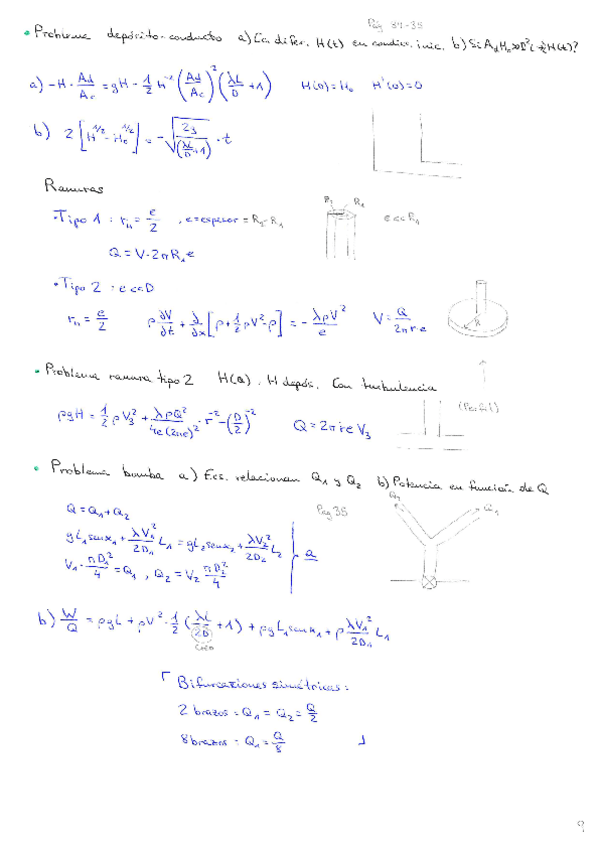 Pág 34-35
• Problema depósito-conducto a) Ec. difer. H(t) en condic. inic. b) Si A_d H_0 >> D²L ¿H(t)?
a) -H·A_d/A_c = gH - 1/2 h'² (A_d/A_c)² (λL/D + 1) H(0) = H_0 H'(0) = 0
b) 2 [H^{1/2} - H_0^{1/2}] = -√(2g/(λL/D + 1)) · t
Ranuras
• Tipo 1 : r_H = e/2 , e = espesor = R_2 - R_1
R_2 R_1
e << R_1
Q = V · 2πR_1 e
• Tipo 2 : e << D
r_H = e/2 ρ ∂V/∂t + ∂/∂x [p + 1/2 ρV² - ρ] = - λρV²/e V = Q/(2πr·e)
R
• Problema ranura tipo 2 H(Q). H depós. Con turbulencia
ρgH = 1/2 ρV_3² + λρQ²/(4e(2πe)²) · r^{-2} - (D/2)^{-2} Q = 2πre V_3
(Perfil)
• Problema bomba a) Ecs. relacionan Q_1 y Q_2 b) Potencia en función de Q
Pág 35
Q_2 Q_1
Q = Q_1 + Q_2
gL_1 senα_1 + λV_1²/(2D_1) L_1 = gL_2 senα_2 + λV_2²/(2D_2) L_2
V_1 · πD_1²/4 = Q_1 , Q_2 = V_2 πD_2²/4
a
b) W/Q = ρgL + ρV² · 1/2 (λL/2D + 1) + ρgL_1 senα_1 + ρ λV_1²/(2D_1) L_1
Bifurcaciones simétricas :
2 brazos : Q_1 = Q_2 = Q/2
8 brazos : Q_1 = Q/8
9